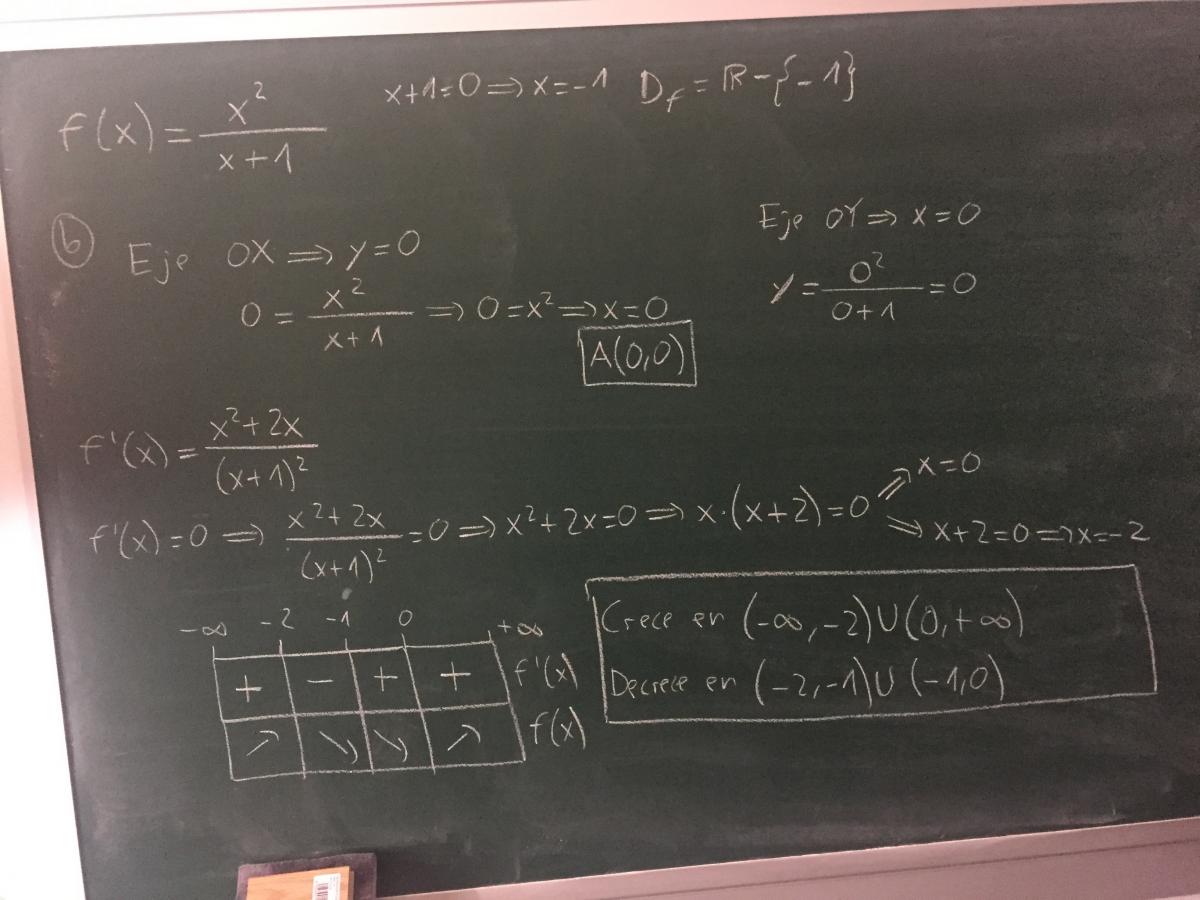 f(x) = x²/(x+1)    x+1=0 ⇒ x=-1    D_f = ℝ-{-1}
ⓑ Eje OX ⇒ y=0    Eje OY ⇒ x=0
0 = x²/(x+1) ⇒ 0=x² ⇒ x=0    y = 0²/(0+1) = 0
A(0,0)
f'(x) = (x²+2x)/(x+1)²
f'(x)=0 ⇒ (x²+2x)/(x+1)² = 0 ⇒ x²+2x=0 ⇒ x·(x+2)=0 ⇗ x=0
⇘ x+2=0 ⇒ x=-2
-∞ -2 -1 0 +∞
+ - + + f'(x)
↗ ↘ ↘ ↗ f(x)
Crece en (-∞,-2)∪(0,+∞)
Decrece en (-2,-1)∪(-1,0)